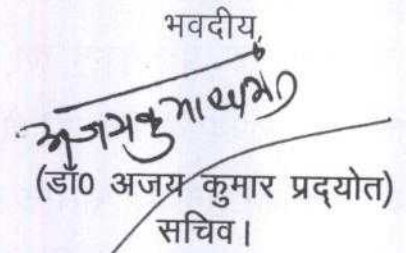 भवदीय,
(डॉ0 अजय कुमार प्रद्योत)
सचिव।